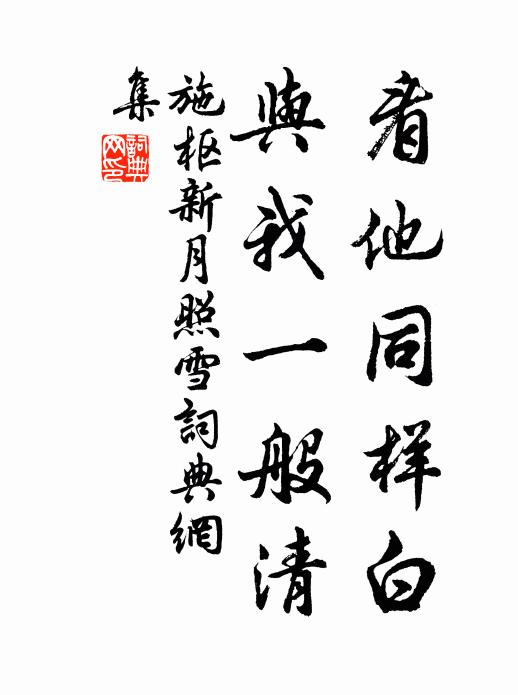 看他同样白
與我一般清
施枢新月照雪詞典網
集
詞典
网印